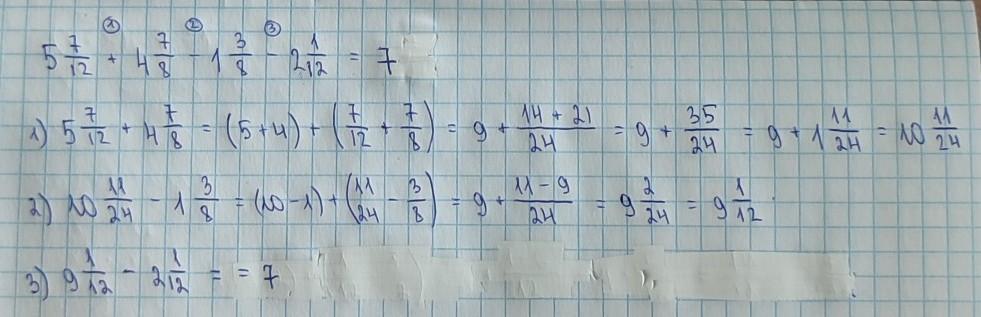 ① ② ③
5 7/12 + 4 7/8 - 1 3/8 - 2 1/12 = 7
1) 5 7/12 + 4 7/8 = (5+4) + (7/12 + 7/8) = 9 + (14 + 21)/24 = 9 + 35/24 = 9 + 1 11/24 = 10 11/24
2) 10 11/24 - 1 3/8 = (10-1) + (11/24 - 3/8) = 9 + (11-9)/24 = 9 2/24 = 9 1/12
3) 9 1/12 - 2 1/12 = = 7